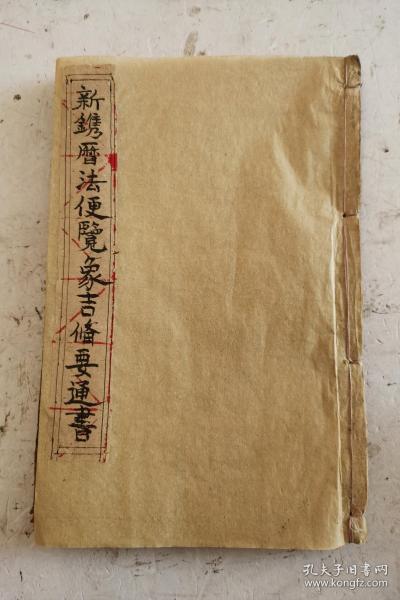 新鐫曆法便覽象吉備要通書
孔夫子旧书网
www.kongfz.com